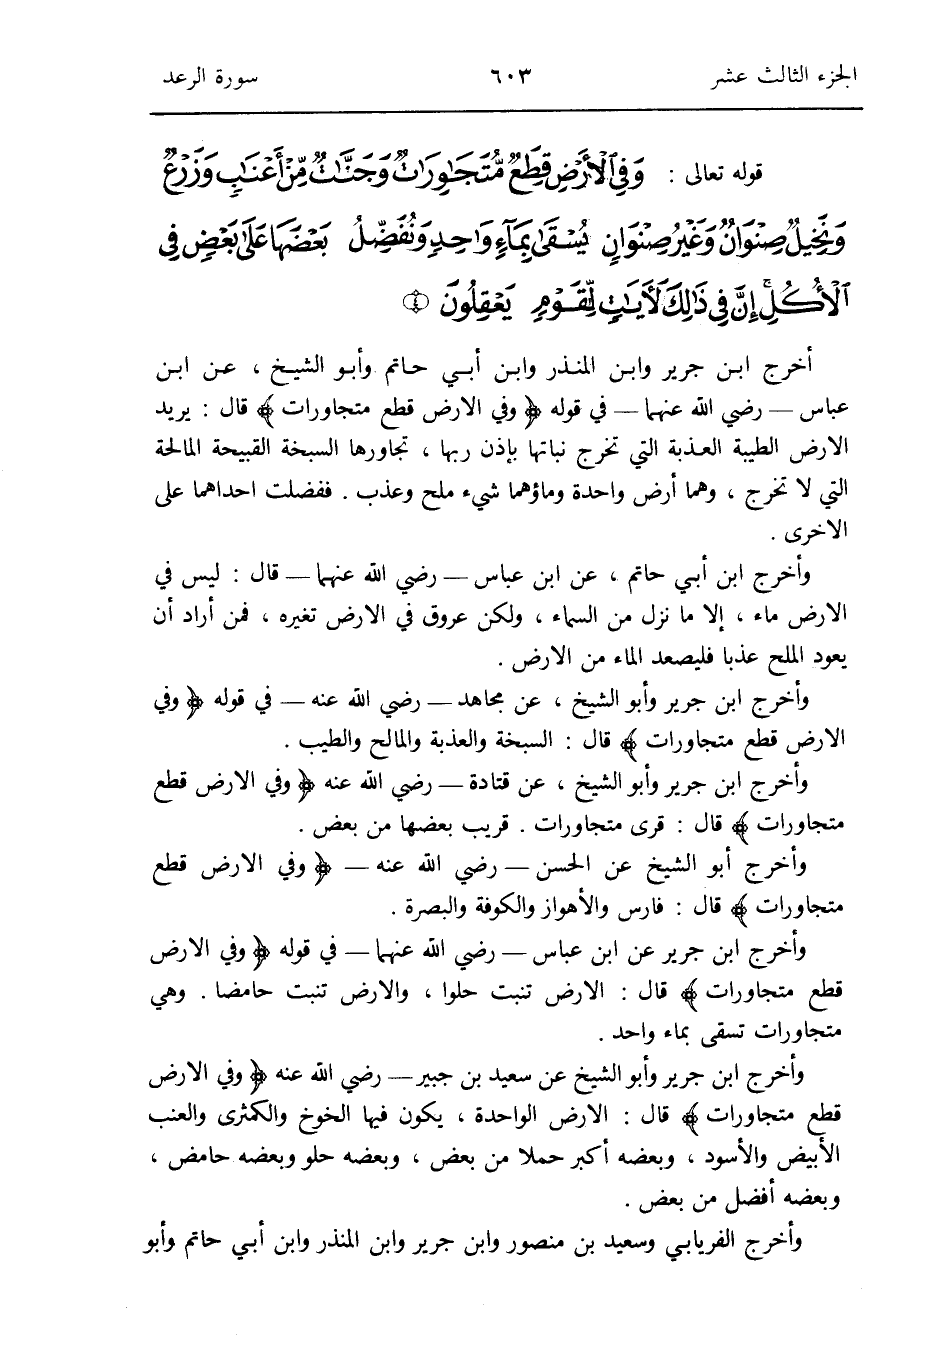 الجزء الثالث عشر ٦٠٣ سورة الرعد
قوله تعالى : وَفِي ٱلْأَرْضِ قِطَعٌ مُّتَجَٰوِرَٰتٌ وَجَنَّٰتٌ مِّنْ أَعْنَٰبٍ وَزَرْعٌ
وَنَخِيلٌ صِنْوَانٌ وَغَيْرُ صِنْوَانٍ يُسْقَىٰ بِمَآءٍ وَٰحِدٍ وَنُفَضِّلُ بَعْضَهَا عَلَىٰ بَعْضٍ فِي
ٱلْأُكُلِ ۚ إِنَّ فِي ذَٰلِكَ لَآيَٰتٍ لِّقَوْمٍ يَعْقِلُونَ ﴿٤﴾
أخرج ابن جرير وابن المنذر وابن أبي حاتم وأبو الشيخ ، عن ابن
عباس — رضي الله عنهما — في قوله ﴿ وفي الارض قطع متجاورات ﴾ قال : يريد
الارض الطيبة العذبة التي تخرج نباتها بإذن ربها ، تجاورها السبخة القبيحة المالحة
التي لا تخرج ، وهما أرض واحدة وماؤهما شيء ملح وعذب . ففضلت احداهما على
الاخرى .
وأخرج ابن أبي حاتم ، عن ابن عباس — رضي الله عنهما — قال : ليس في
الارض ماء ، إلا ما نزل من السماء ، ولكن عروق في الارض تغيره ، فمن أراد أن
يعود الملح عذبا فليصعد الماء من الارض .
وأخرج ابن جرير وأبو الشيخ ، عن مجاهد — رضي الله عنه — في قوله ﴿ وفي
الارض قطع متجاورات ﴾ قال : السبخة والعذبة والمالح والطيب .
وأخرج ابن جرير وأبو الشيخ ، عن قتادة — رضي الله عنه ﴿ وفي الارض قطع
متجاورات ﴾ قال : قرى متجاورات . قريب بعضها من بعض .
وأخرج أبو الشيخ عن الحسن — رضي الله عنه — ﴿ وفي الارض قطع
متجاورات ﴾ قال : فارس والأهواز والكوفة والبصرة .
وأخرج ابن جرير عن ابن عباس — رضي الله عنهما — في قوله ﴿ وفي الارض
قطع متجاورات ﴾ قال : الارض تنبت حلوا ، والارض تنبت حامضا . وهي
متجاورات تسقى بماء واحد .
وأخرج ابن جرير وأبو الشيخ عن سعيد بن جبير — رضي الله عنه ﴿ وفي الارض
قطع متجاورات ﴾ قال : الارض الواحدة ، يكون فيها الخوخ والكمثرى والعنب
الأبيض والأسود ، وبعضه أكبر حملا من بعض ، وبعضه حلو وبعضه حامض ،
وبعضه أفضل من بعض .
وأخرج الفريابي وسعيد بن منصور وابن جرير وابن المنذر وابن أبي حاتم وأبو